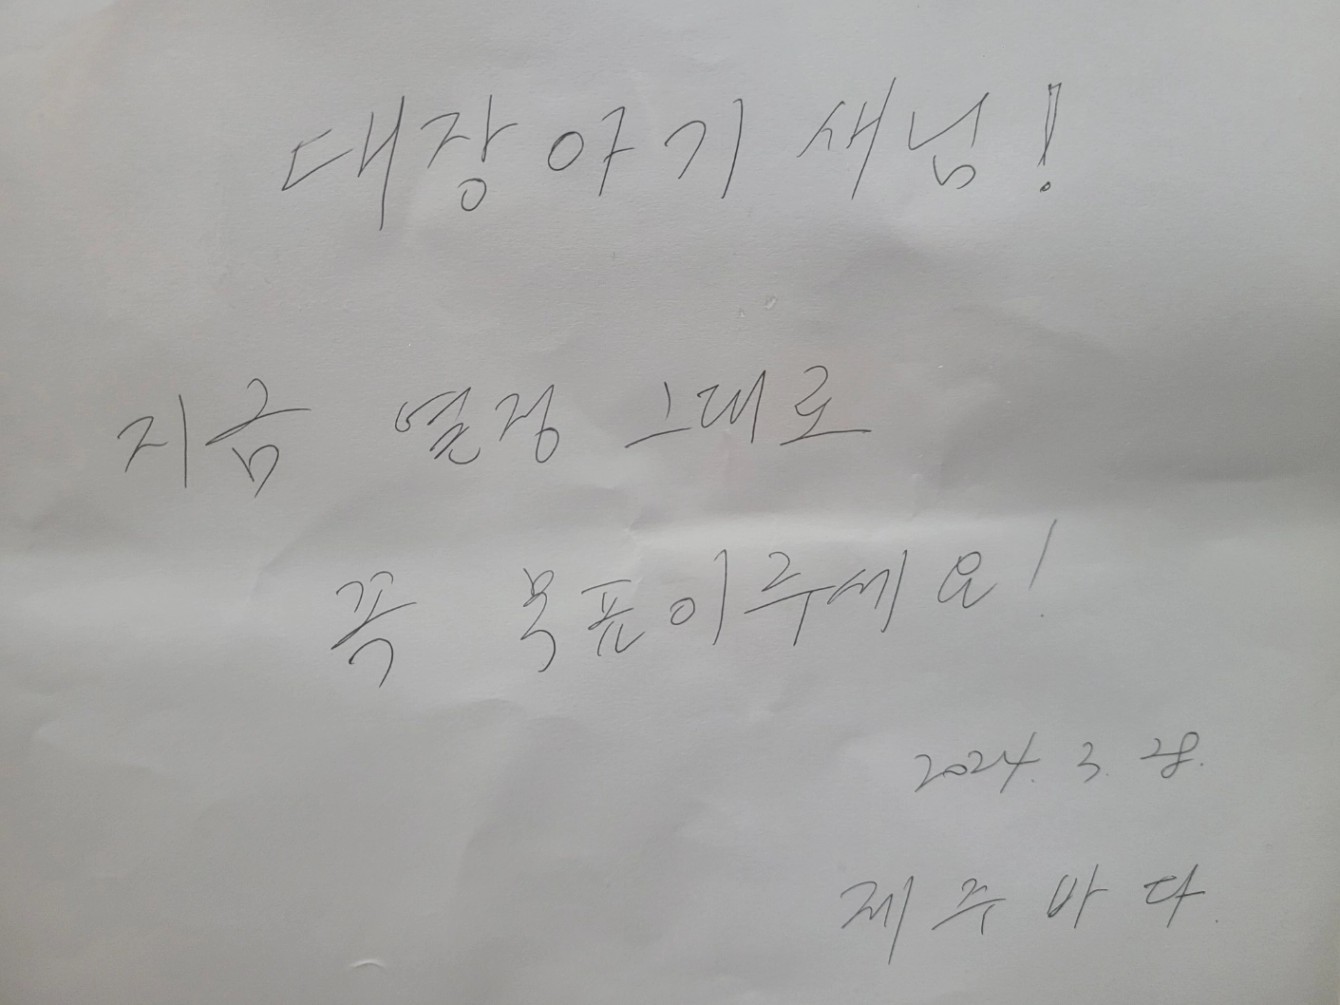 대장아기새님!
지금 열정 그대로
꼭 목표이주세요!
2024. 3. 28.
제주바다.